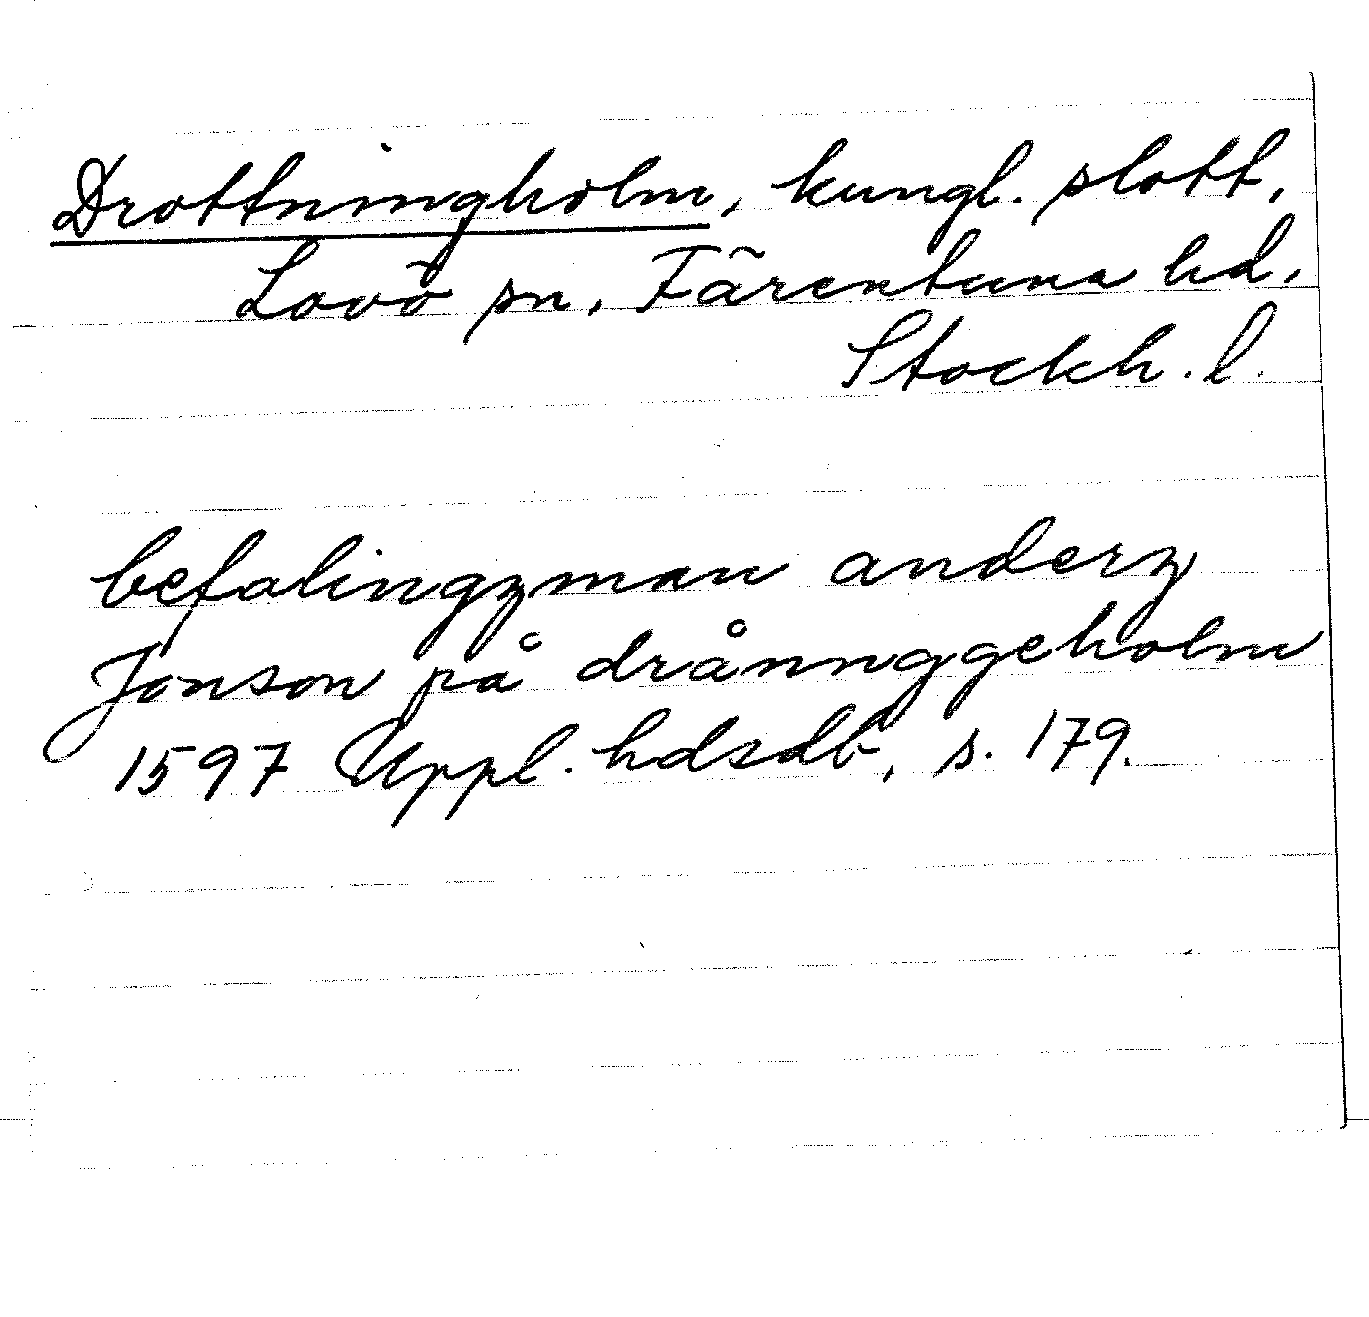 Drottningholm, kungl. slott,
Lovö sn, Färentuna hd,
Stockh. l.
befalingzman anderz
Jonson på drånnggeholm
1597 Uppl. hdsdb, s. 179.